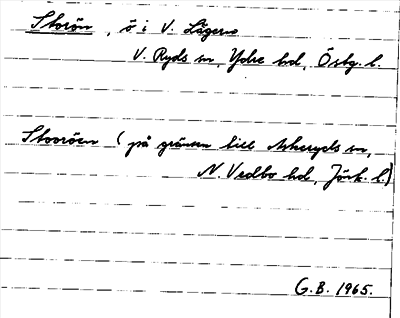 Storön, ö i V. Lägern
V. Ryds sn, Ydre hd, Östg. l.
Stooröen (på gränsen till Askeryds sn,
N. Vedbo hd, Jönk. l.)
G.B. 1965.